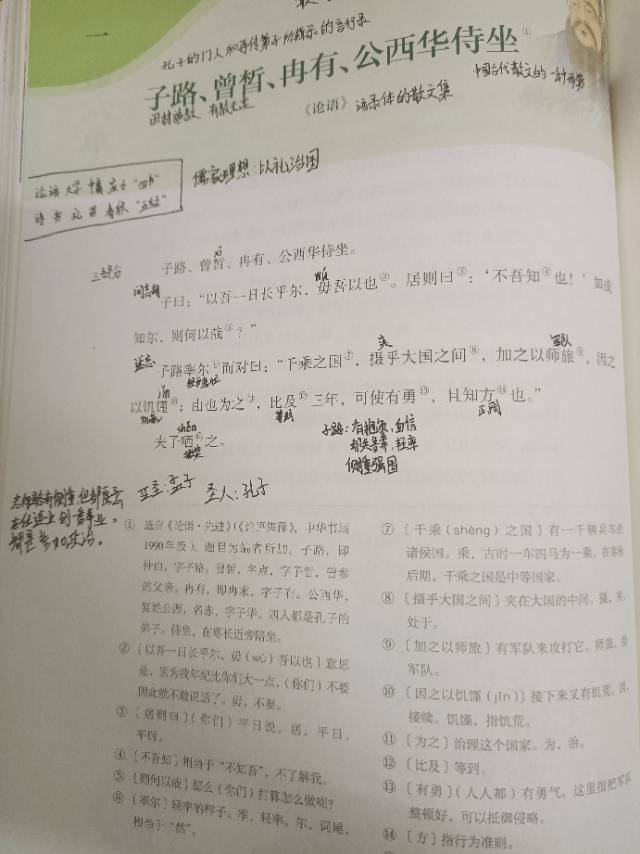 一
孔子的门人和再传弟子所辑录的言行录
子路、曾皙、冉有、公西华侍坐①
中国古代散文的一种形势
《论语》语录体的散文集
论语 大学 中庸 孟子 "四书"
诗 书 礼 易 春秋 "五经"
儒家理想:以礼治国
xī
子路、曾皙、冉有、公西华侍坐。
问志
子曰:"以吾一日长乎尔,毋吾以也②。居则曰③:'不吾知④也!'如或
知尔,则何以哉⑤?"
夹
军队
子路率尔⑥而对曰:"千乘之国⑦,摄乎大国之间⑧,加之以师旅⑨,因之
以饥馑⑩;由也为之⑪,比及⑫三年,可使有勇⑬,且知方⑭也。"
等到
shěn
夫子哂⑮之。
微笑
子路:有抱负,自信
却失鲁莽,轻率
侧重强国
亚圣:孟子 圣人:孔子
① 选自《论语·先进》(《论语译注》,中华书局
1990年版)。题目为编者所加。子路,即
仲由,字子路。曾皙,名点,字子皙,曾参
的父亲。冉有,即冉求,字子有。公西华,
复姓公西,名赤,字子华。四人都是孔子的
弟子。侍坐,在尊长近旁陪坐。
② 〔以吾一日长乎尔,毋(wú)吾以也〕意思
是,因为我年纪比你们大一点,(你们)不要
因此就不敢说话了。毋,不要。
③ 〔居则曰〕(你们)平日说。居,平日、
平时。
④ 〔不吾知〕相当于"不知吾",不了解我。
⑤ 〔则何以哉〕那么(你们)打算怎么做呢?
⑥ 〔率尔〕轻率的样子。率,轻率。尔,词尾,
相当于"然"。
⑦ 〔千乘(shèng)之国〕有一千辆兵车的
诸侯国。乘,古时一车四马为一乘。在春秋
后期,千乘之国是中等国家。
⑧ 〔摄乎大国之间〕夹在大国的中间。摄,夹、
处于。
⑨ 〔加之以师旅〕有军队来攻打它。师旅,指
军队。
⑩ 〔因之以饥馑(jǐn)〕接下来又有饥荒。因,
接续。饥馑,指饥荒。
⑪ 〔为之〕治理这个国家。为,治。
⑫ 〔比及〕等到。
⑬ 〔有勇〕(人人都)有勇气。这里指把军队
整顿好,可以抵御侵略。
⑭ 〔方〕指行为准则。